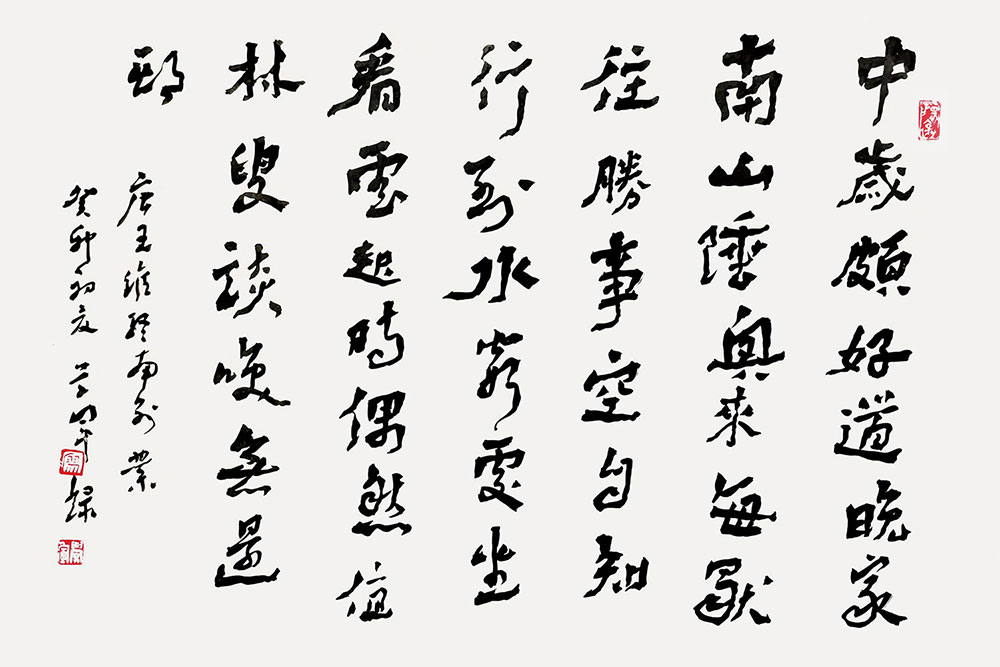 中歲頗好道晚家
南山陲興來每
往勝事空自知
行到水窮處坐
看雲起時偶然值
林叟談咲無還
期
唐王維終南別業
癸卯初夏 錄